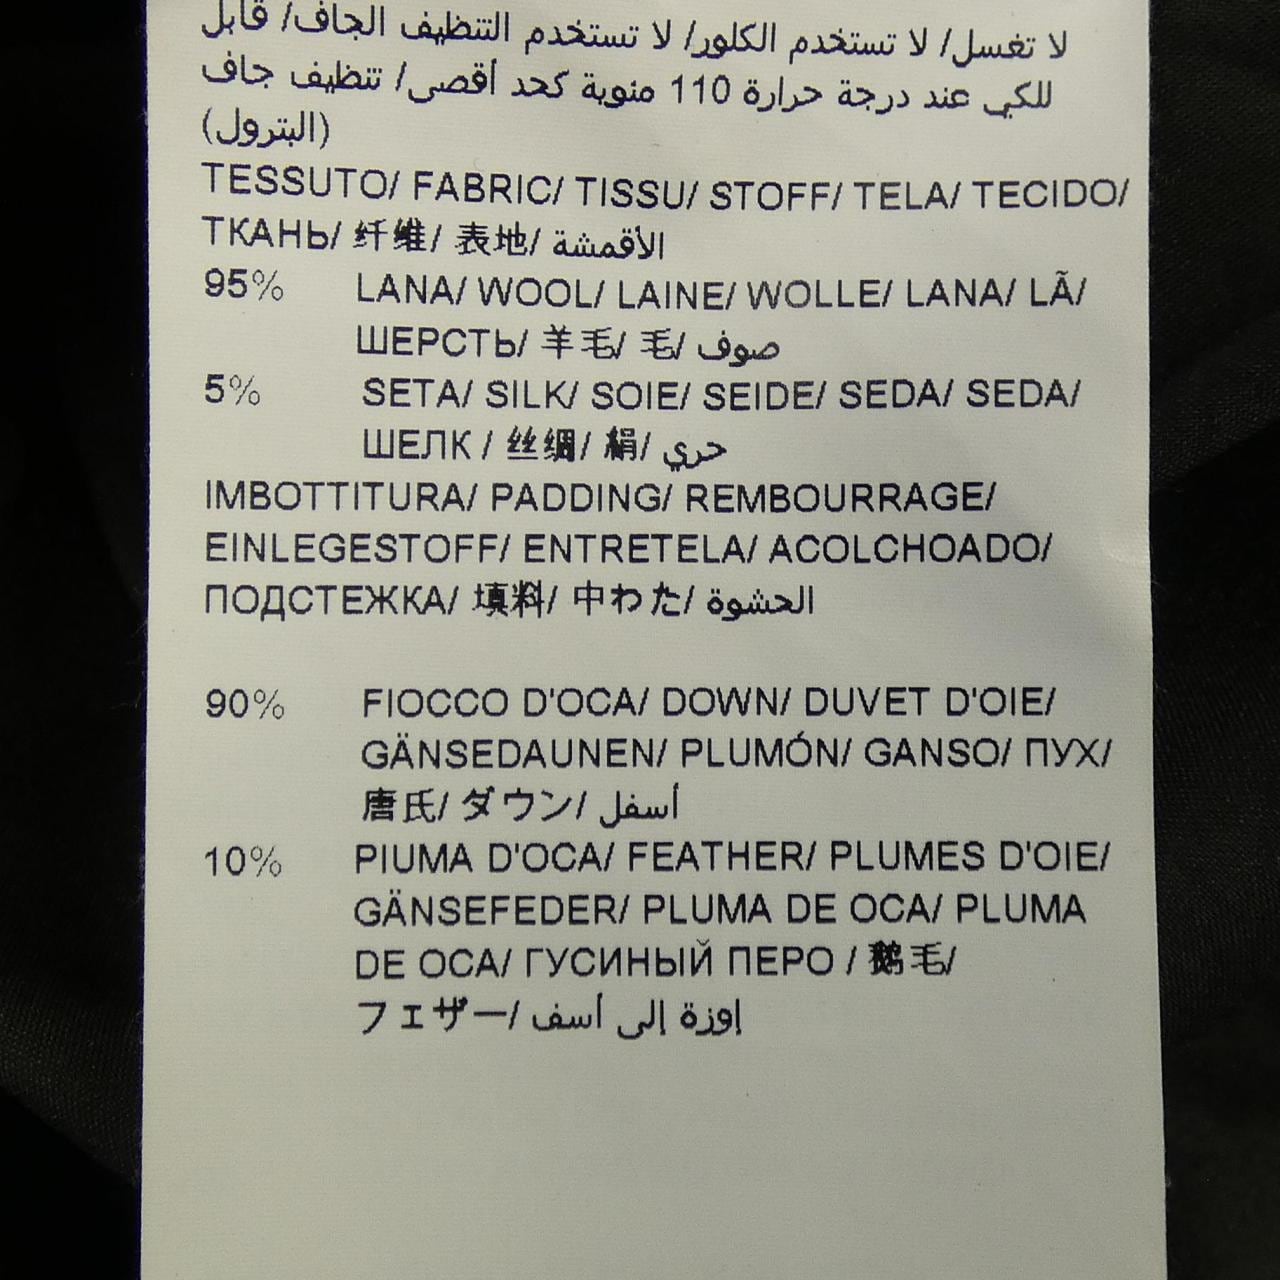 لا تغسل/ لا تستخدم الكلور/ لا تستخدم التنظيف الجاف/ قابل
للكي عند درجة حرارة 110 مئوية كحد أقصى/ تنظيف جاف
(البترول)
TESSUTO/ FABRIC/ TISSU/ STOFF/ TELA/ TECIDO/
ТКАНЬ/ 纤维/ 表地/ الأقمشة
95% LANA/ WOOL/ LAINE/ WOLLE/ LANA/ LÃ/
ШЕРСТЬ/ 羊毛/ 毛/ صوف
5% SETA/ SILK/ SOIE/ SEIDE/ SEDA/ SEDA/
ШЕЛК / 丝绸/ 絹/ حري
IMBOTTITURA/ PADDING/ REMBOURRAGE/
EINLEGESTOFF/ ENTRETELA/ ACOLCHOADO/
ПОДСТЕЖКА/ 填料/ 中わた/ الحشوة
90% FIOCCO D'OCA/ DOWN/ DUVET D'OIE/
GÄNSEDAUNEN/ PLUMÓN/ GANSO/ ПУХ/
唐氏/ ダウン/ أسفل
10% PIUMA D'OCA/ FEATHER/ PLUMES D'OIE/
GÄNSEFEDER/ PLUMA DE OCA/ PLUMA
DE OCA/ ГУСИНЫЙ ПЕРО / 鹅毛/
フェザー/ إوزة إلى أسف